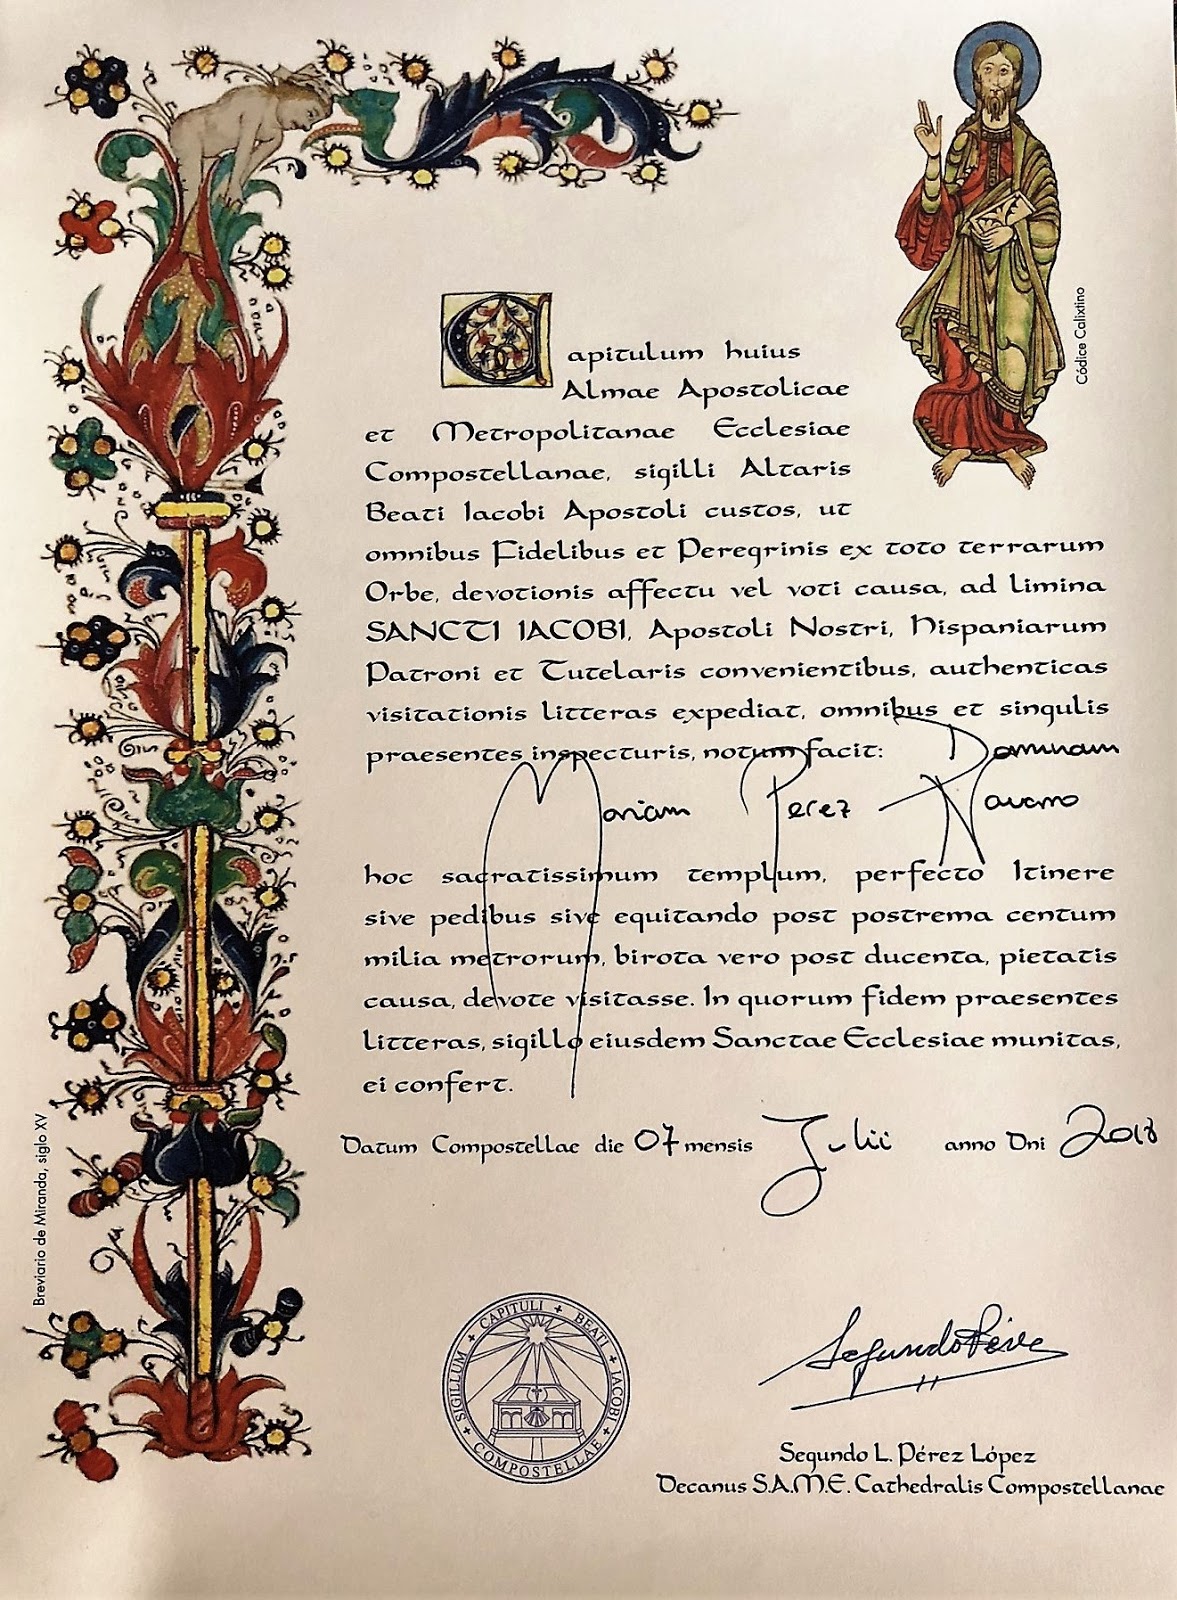 Códice Calixtino
Capitulum huius
Almae Apostolicae
et Metropolitanae Ecclesiae
Compostellanae, sigilli Altaris
Beati Iacobi Apostoli custos, ut
omnibus Fidelibus et Peregrinis ex toto terrarum
Orbe, devotionis affectu vel voti causa, ad limina
SANCTI IACOBI, Apostoli Nostri, Hispaniarum
Patroni et Tutelaris convenientibus, authenticas
visitationis litteras expediat, omnibus et singulis
praesentes inspecturis, notum facit: Dominam
Mariam Perez Navarro
hoc sacratissimum templum, perfecto Itinere
sive pedibus sive equitando post postrema centum
milia metrorum, birota vero post ducenta, pietatis
causa, devote visitasse. In quorum fidem praesentes
litteras, sigillo eiusdem Sanctae Ecclesiae munitas,
ei confert.
Datum Compostellae die 07 mensis Julii anno Dni 2018
Breviario de Miranda, siglo XV
SIGILLUM + CAPITULI + BEATI + IACOBI +
COMPOSTELLAE
Segundo Pérez
Segundo L. Pérez López
Decanus S.A.M.E. Cathedralis Compostellanae